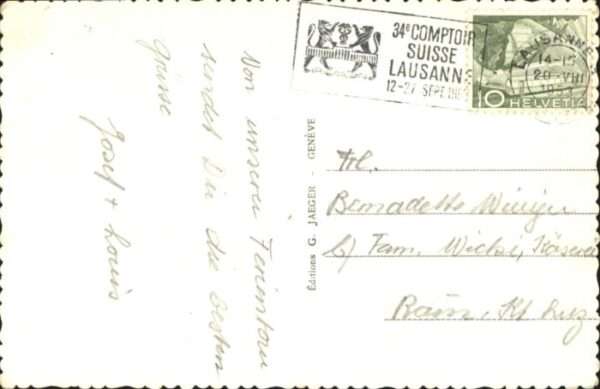 34e COMPTOIR
SUISSE
LAUSANNE
12-27 SEPT.
LAUSANNE
14-15
20.VIII
10 HELVETIA
Von unserer Ferientour
sendet Dir die besten
Grüsse
Josef + Louis
Éditions G. JAEGER - GENÈVE
Frl.
Bernadette
b/ Fam. Käserei
Rain, Kt Luz